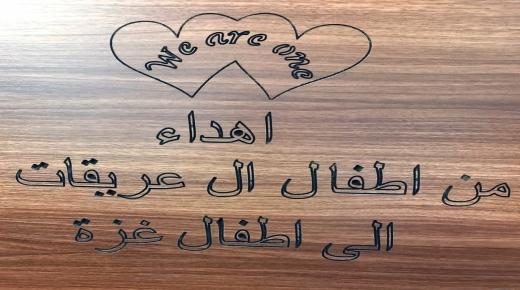 We are one
اهداء
من اطفال ال عريقات
الى اطفال غزة